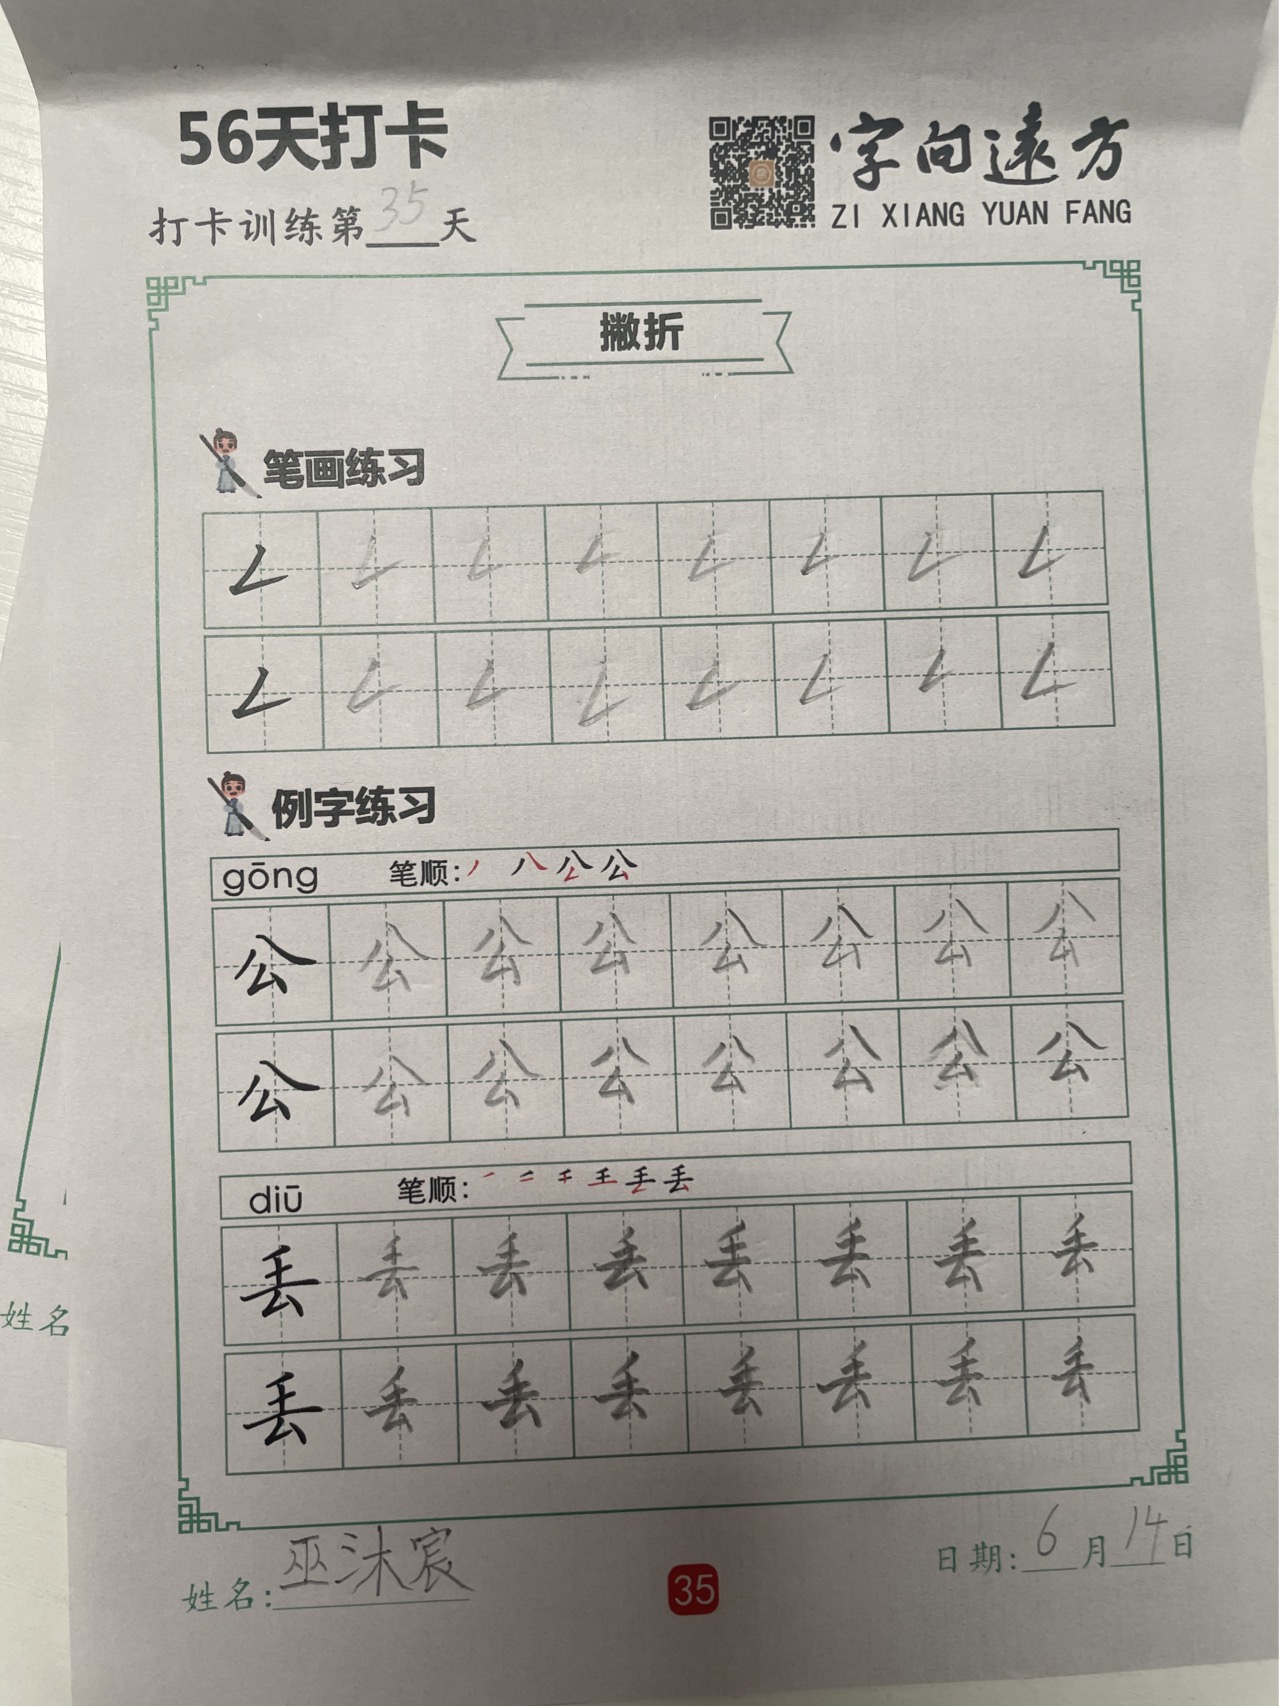 56天打卡
字向遠方
ZI XIANG YUAN FANG
打卡训练第35天
撇折
笔画练习
𠃋 𠃋 𠃋 𠃋 𠃋 𠃋 𠃋 𠃋
𠃋 𠃋 𠃋 𠃋 𠃋 𠃋 𠃋 𠃋
例字练习
gōng 笔顺:
公 公 公 公 公 公 公 公
公 公 公 公 公 公 公 公
diū 笔顺:
丢 丢 丢 丢 丢 丢 丢 丢
丢 丢 丢 丢 丢 丢 丢 丢
姓名
姓名:巫沐宸
35
日期:6月14日